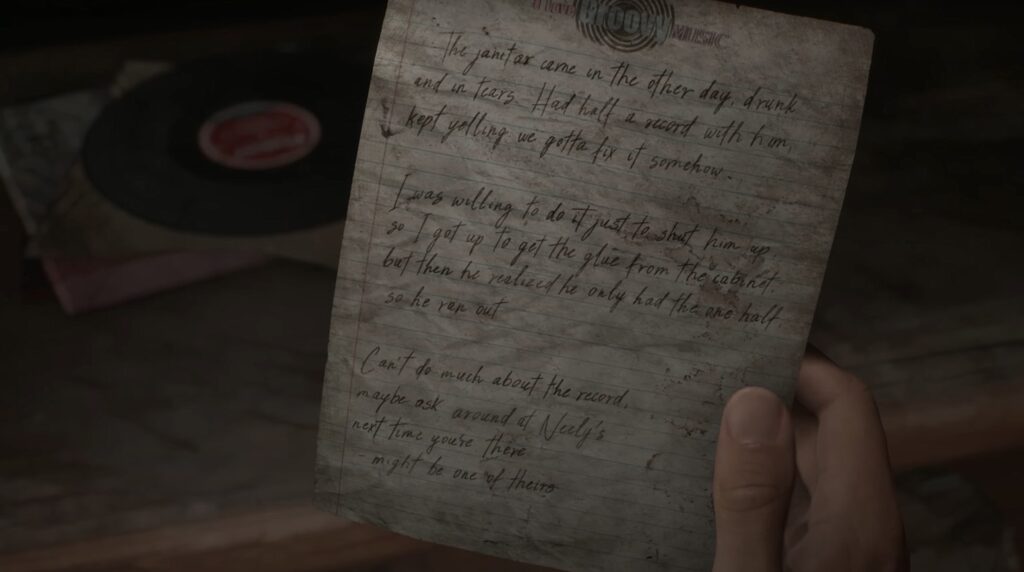 Groovy
MUSIC
The janitor came in the other day, drunk
and in tears. Had half a record with him,
kept yelling we gotta fix it somehow.
I was willing to do it just to shut him up,
so I got up to get the glue from the cabinet
but then he realized he only had the one half
so he ran out
Can't do much about the record,
maybe ask around at Neely's
next time you're there
might be one of theirs